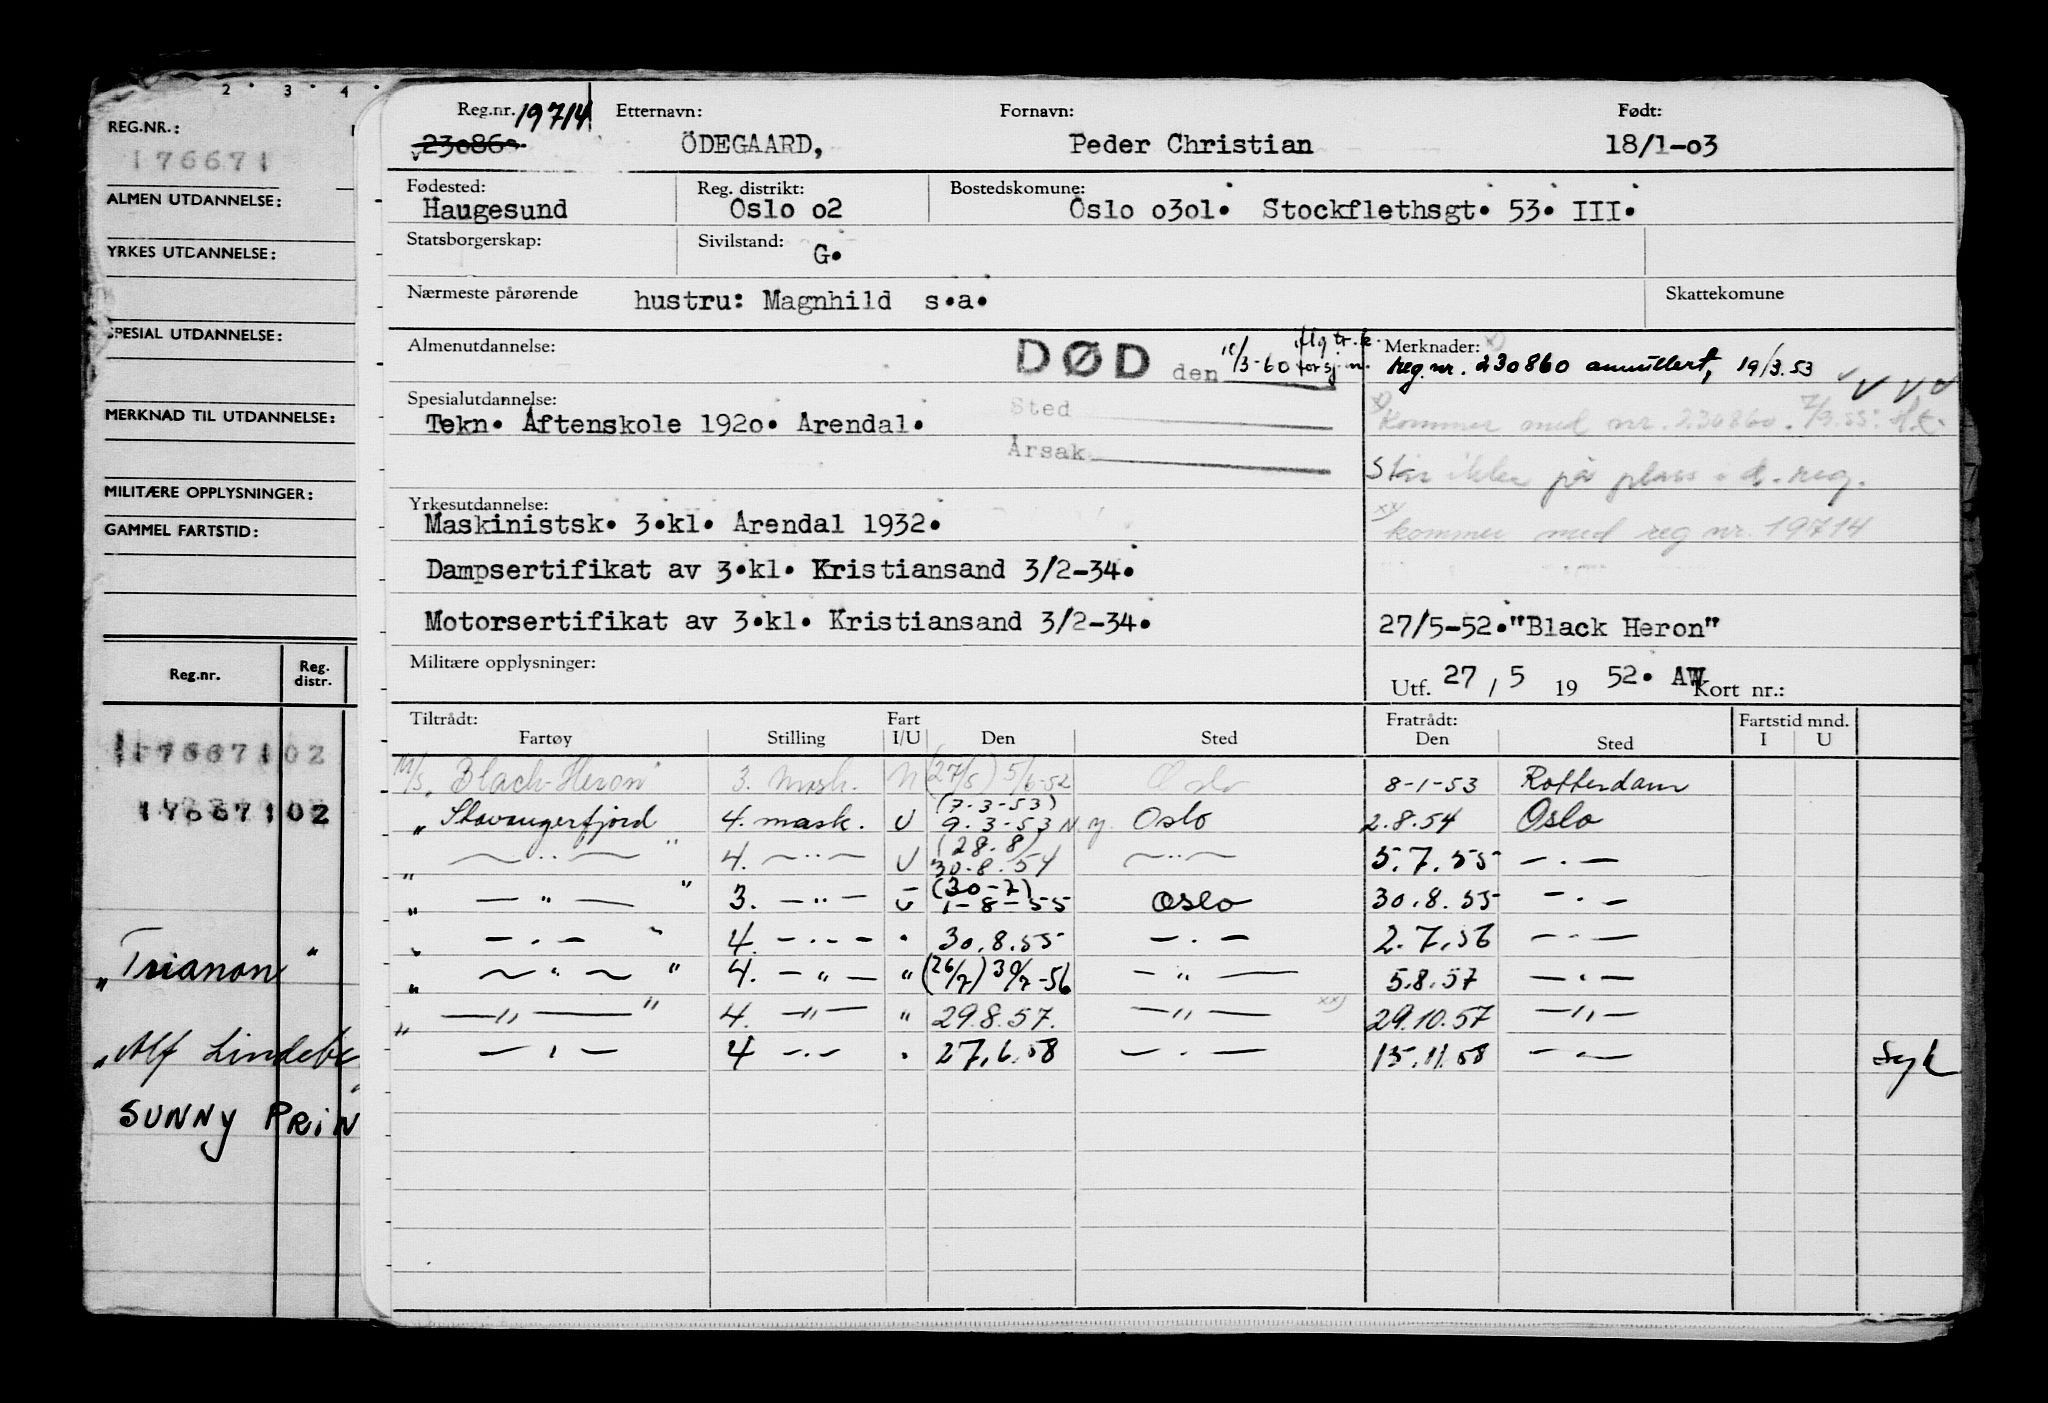 2 · 3 · 4 ·
REG.NR.:
176671
ALMEN UTDANNELSE:
YRKES UTDANNELSE:
SPESIAL UTDANNELSE:
MERKNAD TIL UTDANNELSE:
MILITÆRE OPPLYSNINGER:
GAMMEL FARTSTID:
Reg.nr. Reg. distr.
176671 02
176671 02
„Trianon"
„Alf Lindebe
SUNNY PRIN
Reg.nr. 19714 Etternavn: Fornavn: Født:
230860 ÖDEGAARD, Peder Christian 18/1-03
Fødested: Reg. distrikt: Bostedskomune:
Haugesund Oslo 02 Oslo 0301. Stockflethsgt. 53. III.
Statsborgerskap: Sivilstand:
G.
Nærmeste pårørende hustru: Magnhild s.a. Skattekomune
Almenutdannelse: DØD den /3-60 Merknader:
reg. nr. 230860 annullert, 19/3.53
Spesialutdannelse: Sted
Tekn. Aftenskole 1920. Arendal. kommer med nr. 230860.
Årsak
Står ikke på plass i d. reg.
Yrkesutdannelse:
Maskinistsk. 3.kl. Arendal 1932. kommer med reg nr. 19714
Dampsertifikat av 3.kl. Kristiansand 3/2-34.
Motorsertifikat av 3.kl. Kristiansand 3/2-34. 27/5-52."Black Heron"
Militære opplysninger: Utf. 27 / 5 19 52. AW Kort nr.:
Tiltrådt: Fart Fratrådt: Fartstid mnd.
Fartøy Stilling I/U Den Sted Den Sted I U
M/S „Black-Heron" 3. mask. (27/5) 5/6-52 Oslo 8-1-53 Rotterdam
„ Stavangerfjord 4. mask. U (7-3-53) 9.3-53 N.y. Oslo 2.8.54 Oslo
„ — " — " 4. — " — U (28.8) 30.8.54 — " — 5.7.55 — . —
„ — " — " 3. — " — U (30-7) 1-8-55 Oslo 30.8.55 — . —
„ — . — " 4. — . — - 30.8.55 — . — 2.7.56 — . —
„ — " — " 4. — " — " (26/7) 30/7-56 — " — 5.8.57 — . —
„ — " — " 4. — " — " 29.8.57. — " — xx) 29.10.57 — " —
— . — 4 — . — . 27.6.58 — . — 15.11.58 — . — Syk